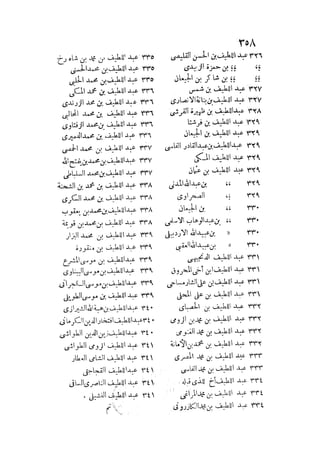 ٣٥٨
٣٢٦ عبد اللطيف بن الحسن القليصى
» » بن حمزة الزبيدى
» » بن شاكر بن الجيعان
٣٢٧ عبد اللطيف بن شمس
٣٢٧ عبد اللطيف بن الانصارى
٣٢٨ عبد اللطيف بن ظهيرة القرشى
٣٢٩ عبد اللطيف بن فرشتا
٣٢٩ عبد اللطيف بن الجيعان
٣٢٩ عبد اللطيف بن عبد القادر الفاسى
٣٢٩ عبد اللطيف المسكى
٣٢٩ عبد اللطيف بن عثمان
٣٢٩ » بن عبد الله المدنى
٣٢٩ » الصحراوى
٣٣٠ » بن الجيعان
٣٣٠ » بن عبد الوهاب
٣٣٠ » بن عبيد الله الاردبيلى
٣٣٠ » بن عبيد الله العقبى
٣٣١ عبد اللطيف
٣٣١ عبد اللطيف ابن أخى المحروق
٣٣١ عبد اللطيف بن على الشارمساحى
٣٣١ عبد اللطيف بن على المحلى
٣٣٢ عبد اللطيف بن
٣٣٢ عبد اللطيف بن محمد بن الرومى
٣٣٢ عبد اللطيف بن محمد الفيومى
٣٣٢ عبد اللطيف بن محمد بن الامانة
٣٣٣ عبد اللطيف بن محمد المصرى
٣٣٣ عبد اللطيف بن محمد الفاسى
٣٣٤ عبد اللطيف أخ للذى قبله
٣٣٤ عبد اللطيف بن محمد
٣٣٤ عبد اللطيف بن محمد الكازرونى
٣٣٥ عبد اللطيف بن محمد بن شاه رخ
٣٣٥ عبد اللطيف بن محمد الحسنى
٣٣٥ عبد اللطيف بن محمد الحلبى
٣٣٦ عبد اللطيف بن محمد المكى
٣٣٦ عبد اللطيف بن محمد الزرندى
٣٣٦ عبد اللطيف بن محمد
٣٣٦ عبد اللطيف بن محمد الزفتاوى
٣٣٦ عبد اللطيف بن محمد الدميرى
٣٣٧ عبد اللطيف بن محمد الحمصى
٣٣٧ عبد اللطيف بن محمد بن فتح الله
٣٣٧ عبد اللطيف بن محمد
٣٣٨ عبد اللطيف بن محمد بن الشحنة
٣٣٨ عبد اللطيف بن محمد السكرى
٣٣٨ عبد اللطيف بن محمد بن يعقوب
٣٣٨ عبد اللطيف بن محمد بن
٣٣٩ عبد اللطيف بن محمد البزار
٣٣٩ عبد اللطيف بن منقورة
٣٣٩ عبد اللطيف بن موسى المشرع
٣٣٩ عبد اللطيف بن موسى البيناوى
٣٣٩ عبد اللطيف بن موسى
٣٣٩ عبد اللطيف بن موسى الطويلى
٣٤٠ عبد اللطيف بن هبة الله الشيرازى
٣٤٠ عبد اللطيف افتخار الدين الكرمانى
٣٤٠ عبد اللطيف زين الدين الطواشى
٣٤١ عبد اللطيف الرومى الطواشى
٣٤١ عبد اللطيف الشامى العطار
٣٤١ عبد اللطيف القجاجقى
٣٤١ عبد اللطيف الناصرى الساقى
٣٤١ عبد اللطيف الششينى .
تم